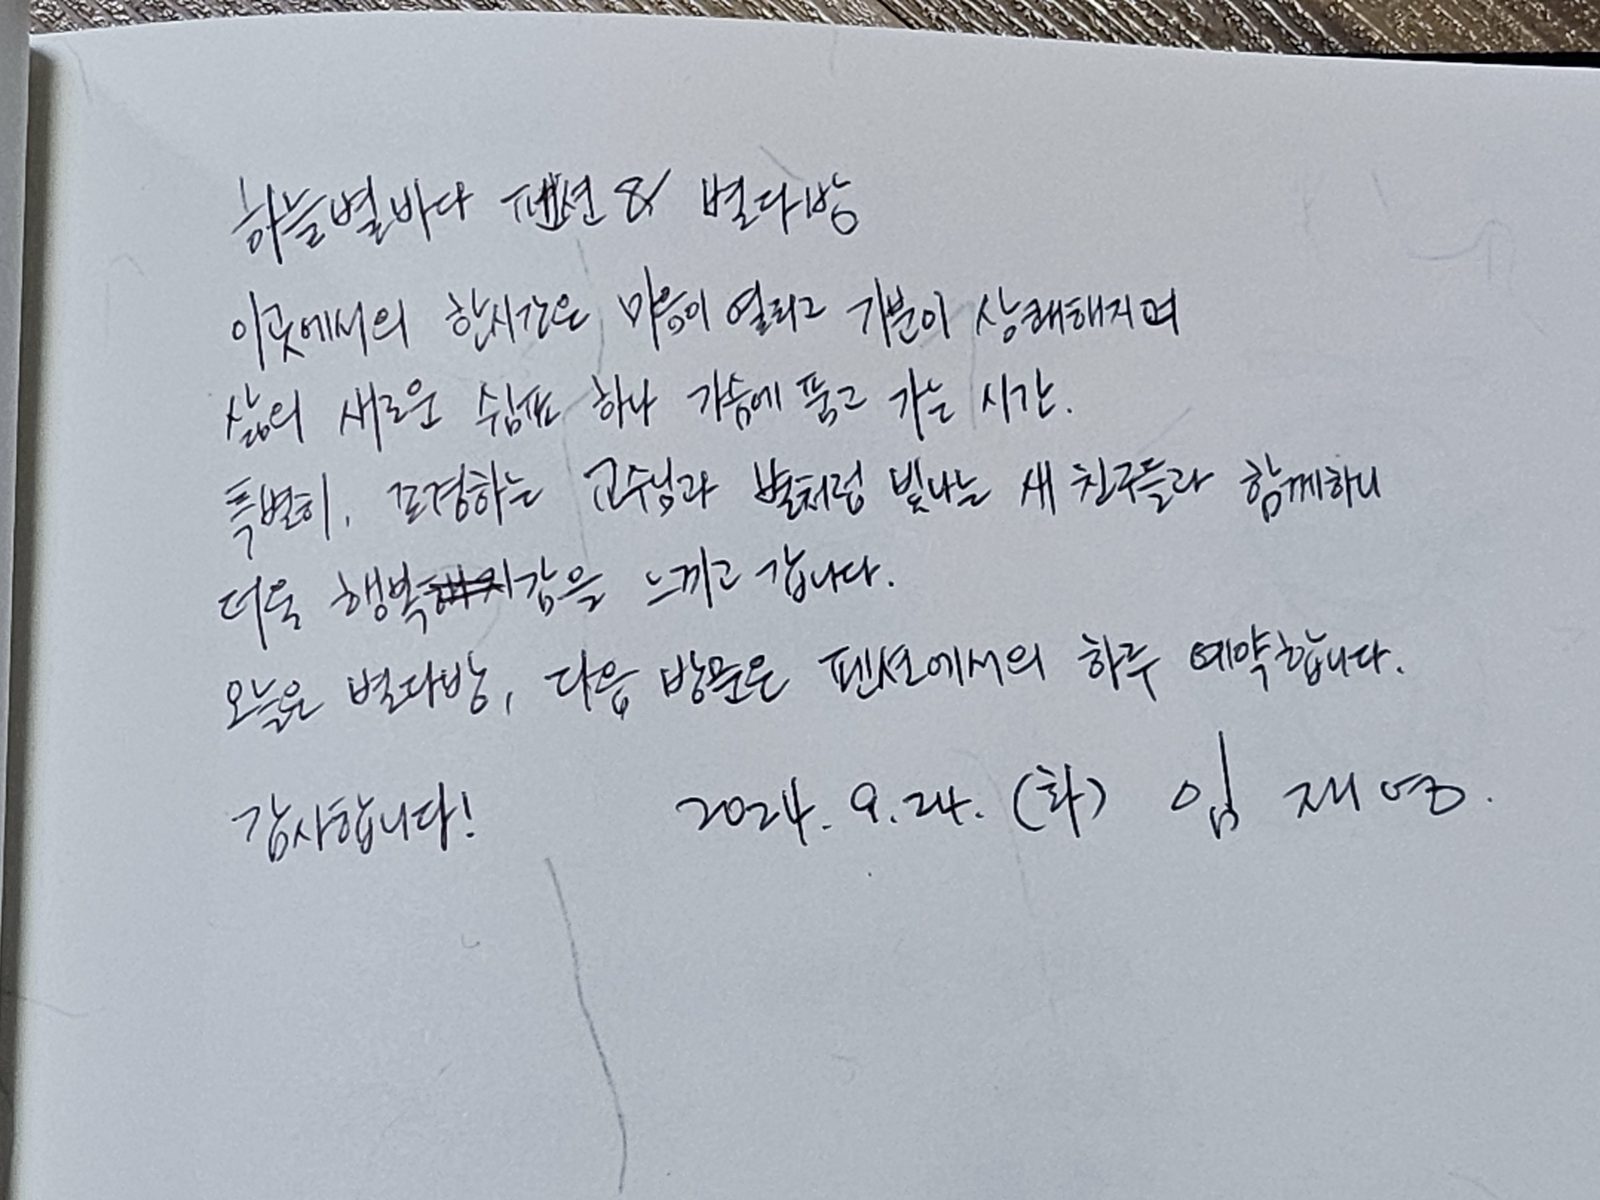 하늘별바다 펜션 & 별다방
이곳에서의 한시간은 마음이 열리고 기분이 상쾌해지며
삶의 새로운 쉼표 하나 가슴에 품고 가는 시간.
특별히, 존경하는 교수님과 별처럼 빛나는 새 친구들과 함께하니
더욱 행복감을 느끼고 갑니다.
오늘은 별다방, 다음 방문은 펜션에서의 하루 예약합니다.
감사합니다! 2024. 9. 24. (화) 임재영.